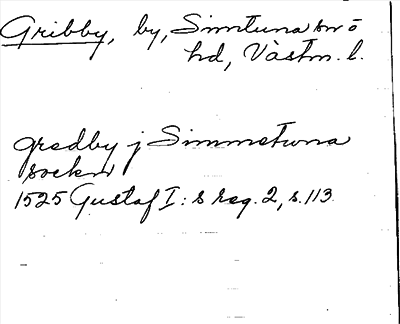 Gribby, by, Simtuna sn o
hd, Västm. l.
gredby j Simmetuna
sockn
1525 Gustaf I:s reg. 2, s. 113